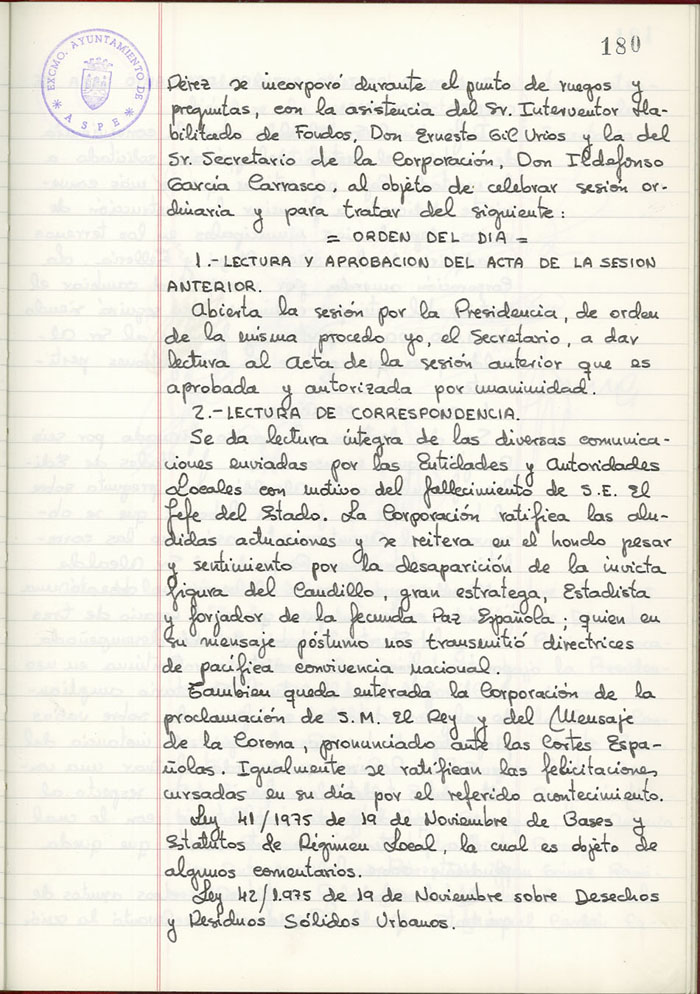 EXCMO. AYUNTAMIENTO DE
* ASPE *
180
Pérez se incorporó durante el punto de ruegos y
preguntas, con la asistencia del Sr. Interventor Ha-
bilitado de Fondos, Don Ernesto Gil Urios y la del
Sr. Secretario de la Corporación, Don Ildefonso
García Carrasco, al objeto de celebrar sesión or-
dinaria y para tratar del siguiente:
= ORDEN DEL DIA =
1.- LECTURA Y APROBACION DEL ACTA DE LA SESION
ANTERIOR.
Abierta la sesión por la Presidencia, de orden
de la misma procedo yo, el Secretario, a dar
lectura al Acta de la sesión anterior que es
aprobada y autorizada por unanimidad.
2.- LECTURA DE CORRESPONDENCIA.
Se da lectura íntegra de las diversas comunica-
ciones enviadas por las Entidades y Autoridades
Locales con motivo del fallecimiento de S.E. El
Jefe del Estado. La Corporación ratifica las alu-
didas actuaciones y se reitera en el hondo pesar
y sentimiento por la desaparición de la invicta
figura del Caudillo, gran estratega, Estadista
y forjador de la fecunda Paz Española; quien en
su mensaje póstumo nos transmitió directrices
de pacífica convivencia nacional.
Tambien queda enterada la Corporación de la
proclamación de S.M. El Rey y del Mensaje
de la Corona, pronunciado ante las Cortes Espa-
ñolas. Igualmente se ratifican las felicitaciones
cursadas en su día por el referido acontecimiento.
Ley 41/1975 de 19 de Noviembre de Bases y
Estatutos de Régimen Local, la cual es objeto de
algunos comentarios.
Ley 42/1.975 de 19 de Noviembre sobre Desechos
y Residuos Sólidos Urbanos.